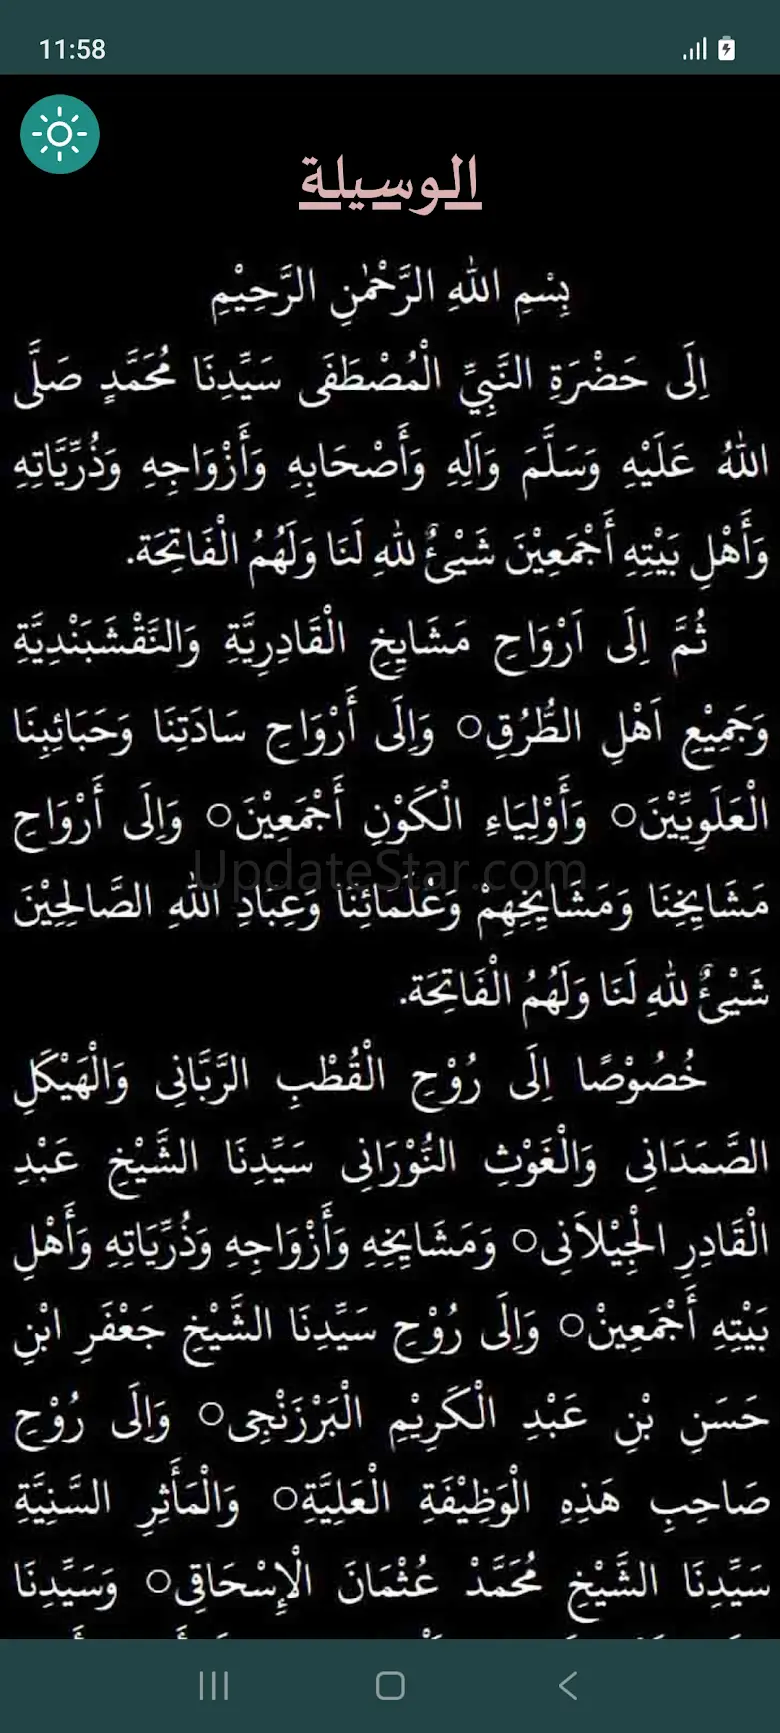 11:58
الوسيلة
بِسْمِ اللهِ الرَّحْمٰنِ الرَّحِيْمِ
اِلَى حَضْرَةِ النَّبِيِّ الْمُصْطَفَى سَيِّدِنَا مُحَمَّدٍ صَلَّى
اللهُ عَلَيْهِ وَسَلَّمَ وَاَلِهِ وَأَصْحَابِهِ وَأَزْوَاجِهِ وَذُرِّيَّاتِهِ
وَأَهْلِ بَيْتِهِ أَجْمَعِيْنَ شَيْئٌ لِلهِ لَنَا وَلَهُمُ الْفَاتِحَة.
ثُمَّ اِلَى اَرْوَاحِ مَشَايِخِ الْقَادِرِيَّةِ وَالنَّقْشَبَنْدِيَّةِ
وَجَمِيْعِ اَهْلِ الطُّرُقِ○ وَاِلَى أَرْوَاحِ سَادَتِنَا وَحَبَائِبِنَا
الْعَلَوِيِّيْنَ○ وَأَوْلِيَاءِ الْكَوْنِ أَجْمَعِيْنَ○ وَاِلَى أَرْوَاحِ
UpdateStar.com
مَشَايِخِنَا وَمَشَايِخِهِمْ وَعُلَمَائِنَا وَعِبَادِ اللهِ الصَّالِحِيْنَ
شَيْئٌ لِلهِ لَنَا وَلَهُمُ الْفَاتِحَة.
خُصُوْصًا اِلَى رُوْحِ الْقُطْبِ الرَّبَّانِى وَالْهَيْكَلِ
الصَّمَدَانِى وَالْغَوْثِ النُّوْرَانِى سَيِّدِنَا الشَّيْخِ عَبْدِ
الْقَادِرِ الْجِيْلَانِى○ وَمَشَايِخِهِ وَأَزْوَاجِهِ وَذُرِّيَاتِهِ وَأَهْلِ
بَيْتِهِ أَجْمَعِيْنْ○ وَاِلَى رُوْحِ سَيِّدِنَا الشَّيْخِ جَعْفَرِ ابْنِ
حَسَنِ بْنِ عَبْدِ الْكَرِيْمِ الْبَرْزَنْجِى○ وَاِلَى رُوْحِ
صَاحِبِ هَذِهِ الْوَظِيْفَةِ الْعَلِيَّةِ○ وَالْمَأَثِرِ السَّنِيَّةِ
سَيِّدِنَا الشَّيْخِ مُحَمَّدْ عُثْمَانَ الْإِسْحَاقِى○ وَسَيِّدِنَا